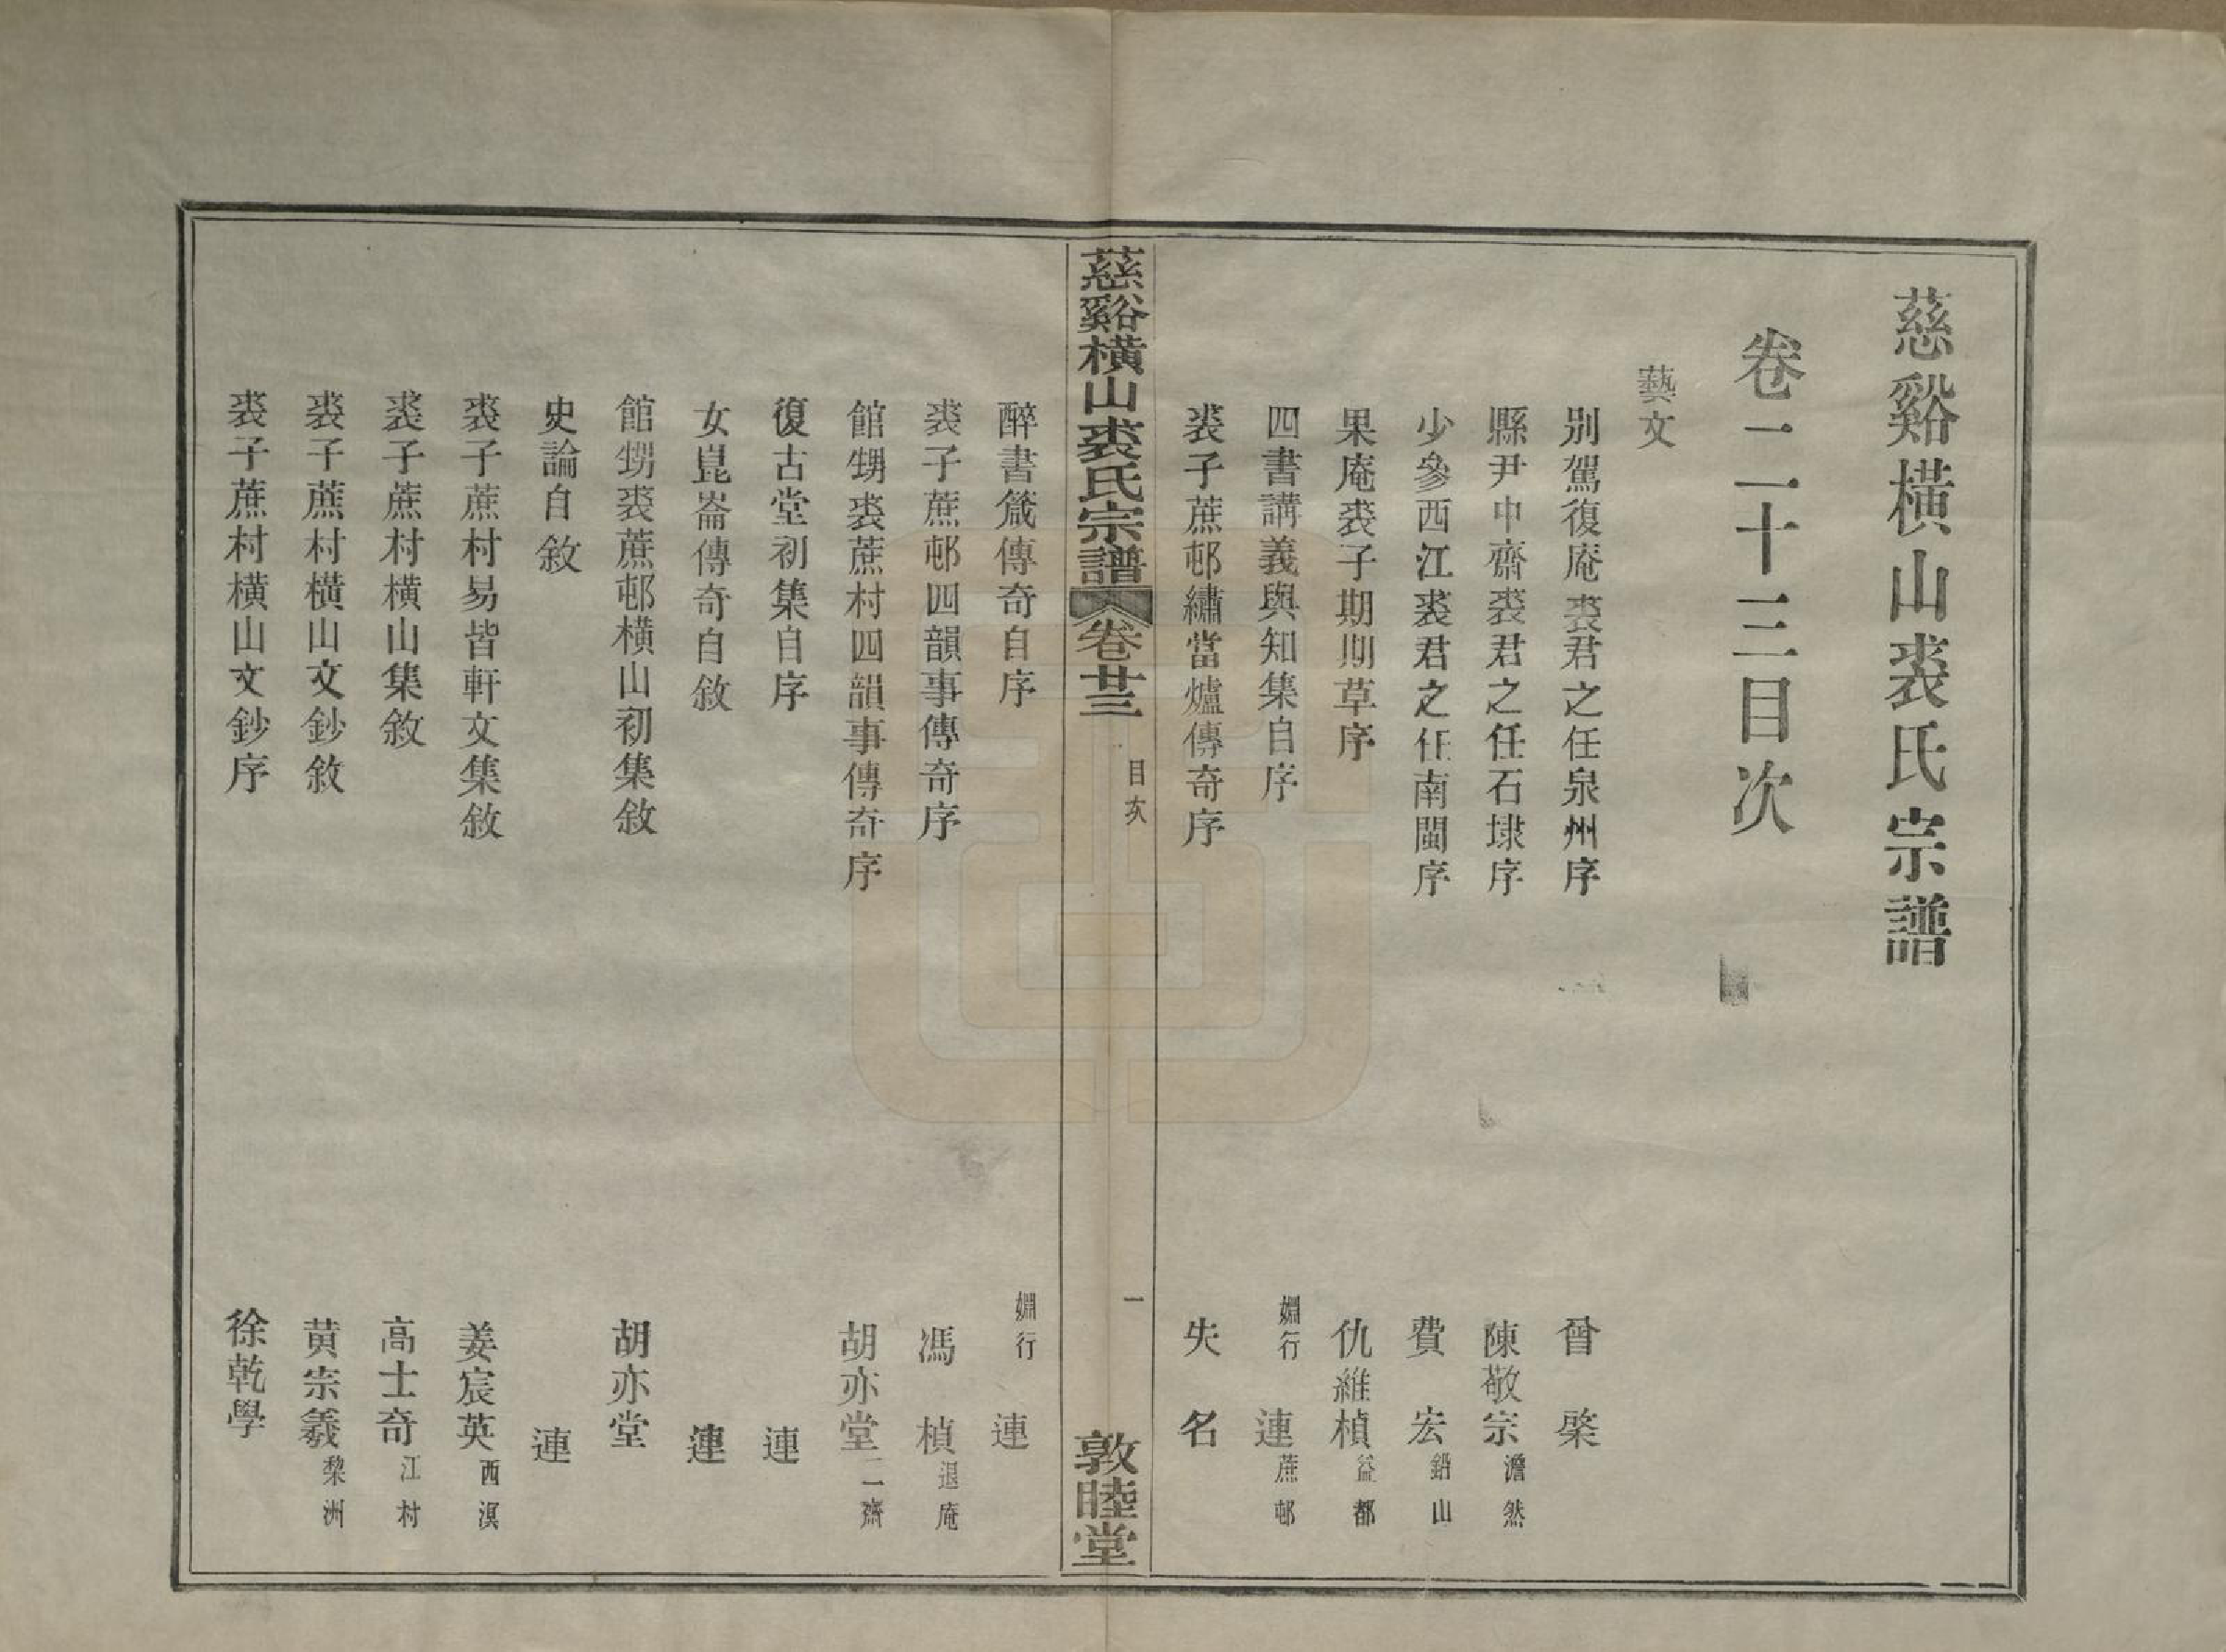 慈谿橫山裘氏宗譜
卷二十三目次
藝文
別駕復庵裘君之任泉州序 曾棨
縣尹中齋裘君之任石埭序 陳敬宗澹然
少參西江裘君之任南閩序 費宏鉛山
果庵裘子期期草序 仇維楨益都
四書講義與知集自序 嫺行連蔗邨
裘子蔗邨繡當爐傳奇序 失名
慈谿橫山裘氏宗譜 卷廿三 目次 一 敦睦堂
醉書箴傳奇自序 嫺行連
裘子蔗邨四韻事傳奇序 馮楨退庵
館甥裘蔗村四韻事傳奇序 胡亦堂二齋
復古堂初集自序 連
女崑崙傳奇自敘 連
館甥裘蔗邨橫山初集敘 胡亦堂
史論自敘 連
裘子蔗村易皆軒文集敘 姜宸英西溟
裘子蔗村橫山集敘 高士奇江村
裘子蔗村橫山文鈔敘 黄宗羲棃洲
裘子蔗村橫山文鈔序 徐乾學